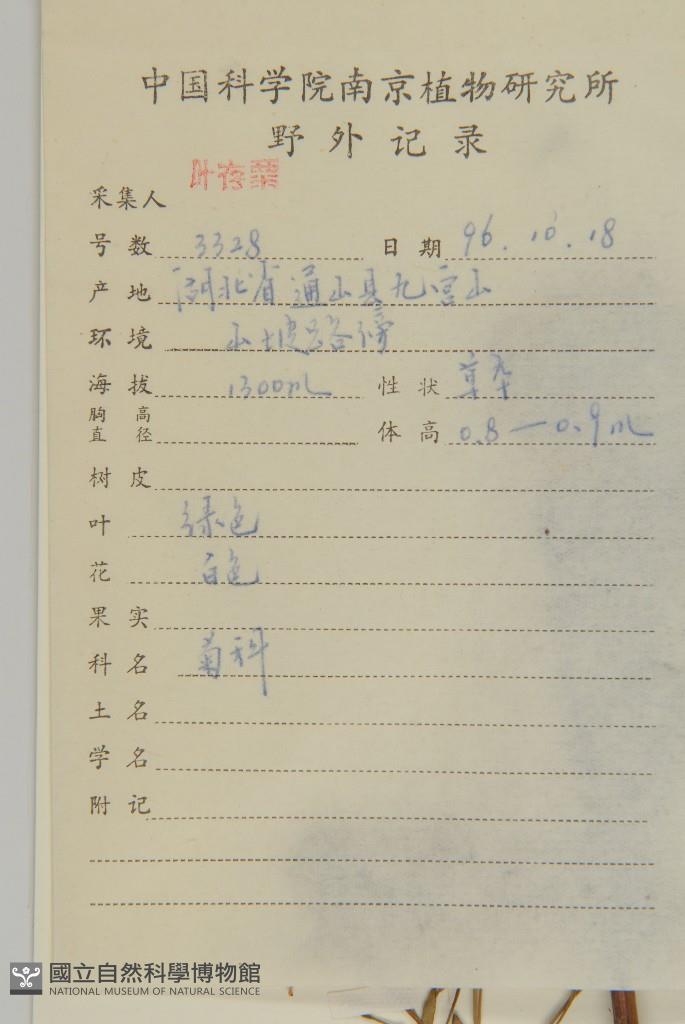 中国科学院南京植物研究所
野外记录
采集人 叶存粟
号数 3328 日期 96.10.18
产地 湖北省通山县九宫山
环境 山坡路旁
海拔 1300m 性状 草本
胸高直径 体高 0.8—0.9m
树皮
叶 绿色
花 白色
果实
科名 菊科
土名
学名
附记
國立自然科學博物館
NATIONAL MUSEUM OF NATURAL SCIENCE